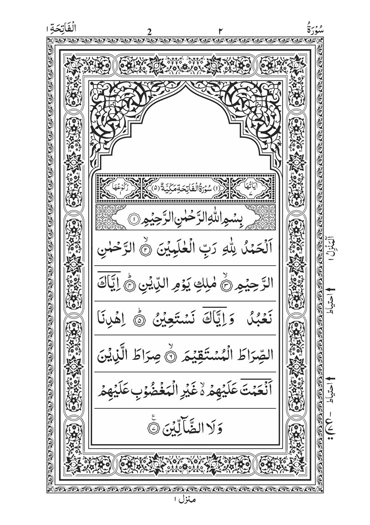 سُوْرَةُ ٢ 2 الْفَاتِحَةِ ١
اٰيَاتُهَا (١) سُوْرَةُ الْفَاتِحَةِ مَكِّيَّةٌ (٥) رُكُوْعُهَا
بِسْمِ اللهِ الرَّحْمٰنِ الرَّحِيْمِ ۝١
اَلْحَمْدُ لِلّٰهِ رَبِّ الْعٰلَمِيْنَ ۝ الرَّحْمٰنِ
الرَّحِيْمِ ۝ مٰلِكِ يَوْمِ الدِّيْنِ ۝ اِيَّاكَ
نَعْبُدُ وَاِيَّاكَ نَسْتَعِيْنُ ۝ اِهْدِنَا
الصِّرَاطَ الْمُسْتَقِيْمَ ۝ صِرَاطَ الَّذِيْنَ
اَنْعَمْتَ عَلَيْهِمْ ۙ غَيْرِ الْمَغْضُوْبِ عَلَيْهِمْ
وَلَا الضَّآلِّيْنَ ۝
اَلْمَنْزِلُ ١
احتياط
احتياط
منزل ١